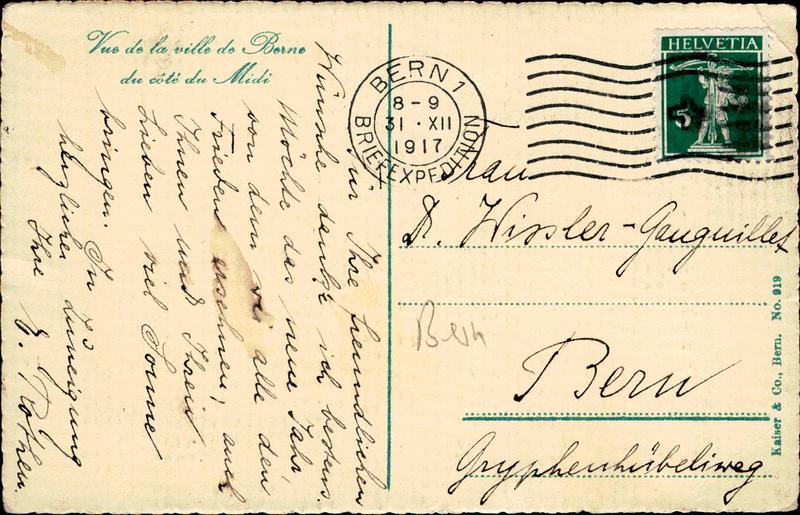 Vue de la ville de Berne
du côté du Midi
Für Ihre freundlichen
Wünsche danke ich bestens.
Möchte das neue Jahr,
von dem wir alle den
Frieden ersehnen, auch
Ihnen und Ihren
Lieben viel Sonne
bringen. In Zuneigung
herzlicher
Ihre
BERN 1
8-9
31 · XII
1917
BRIEFEXPEDITION
HELVETIA
5
Frau
Dr. Wissler-Gauguillet
Bern
Bern
Gryphenhübeliweg
Kaiser & Co., Bern. No. 919